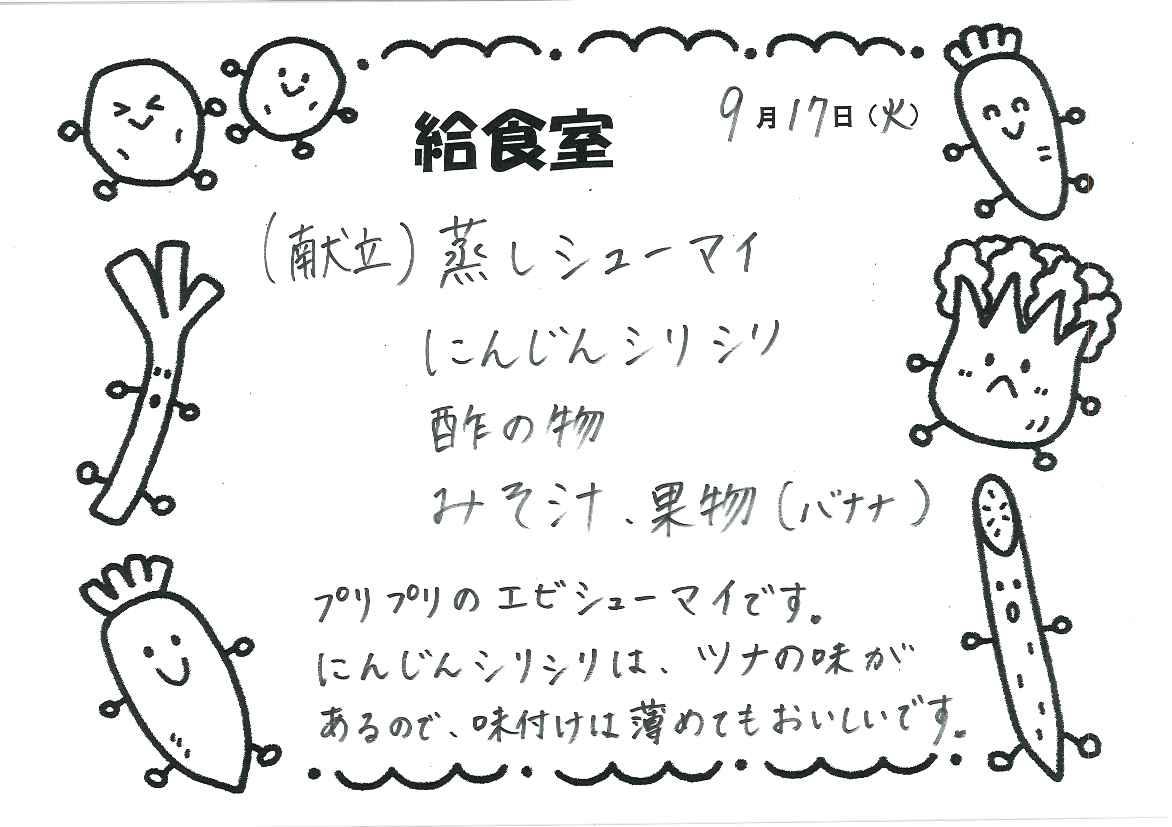 給食室
9月17日(火)
(献立)蒸しシューマイ
にんじんシリシリ
酢の物
みそ汁、果物(バナナ)
プリプリのエビシューマイです。
にんじんシリシリは、ツナの味が
あるので、味付けは薄めてもおいしいです。